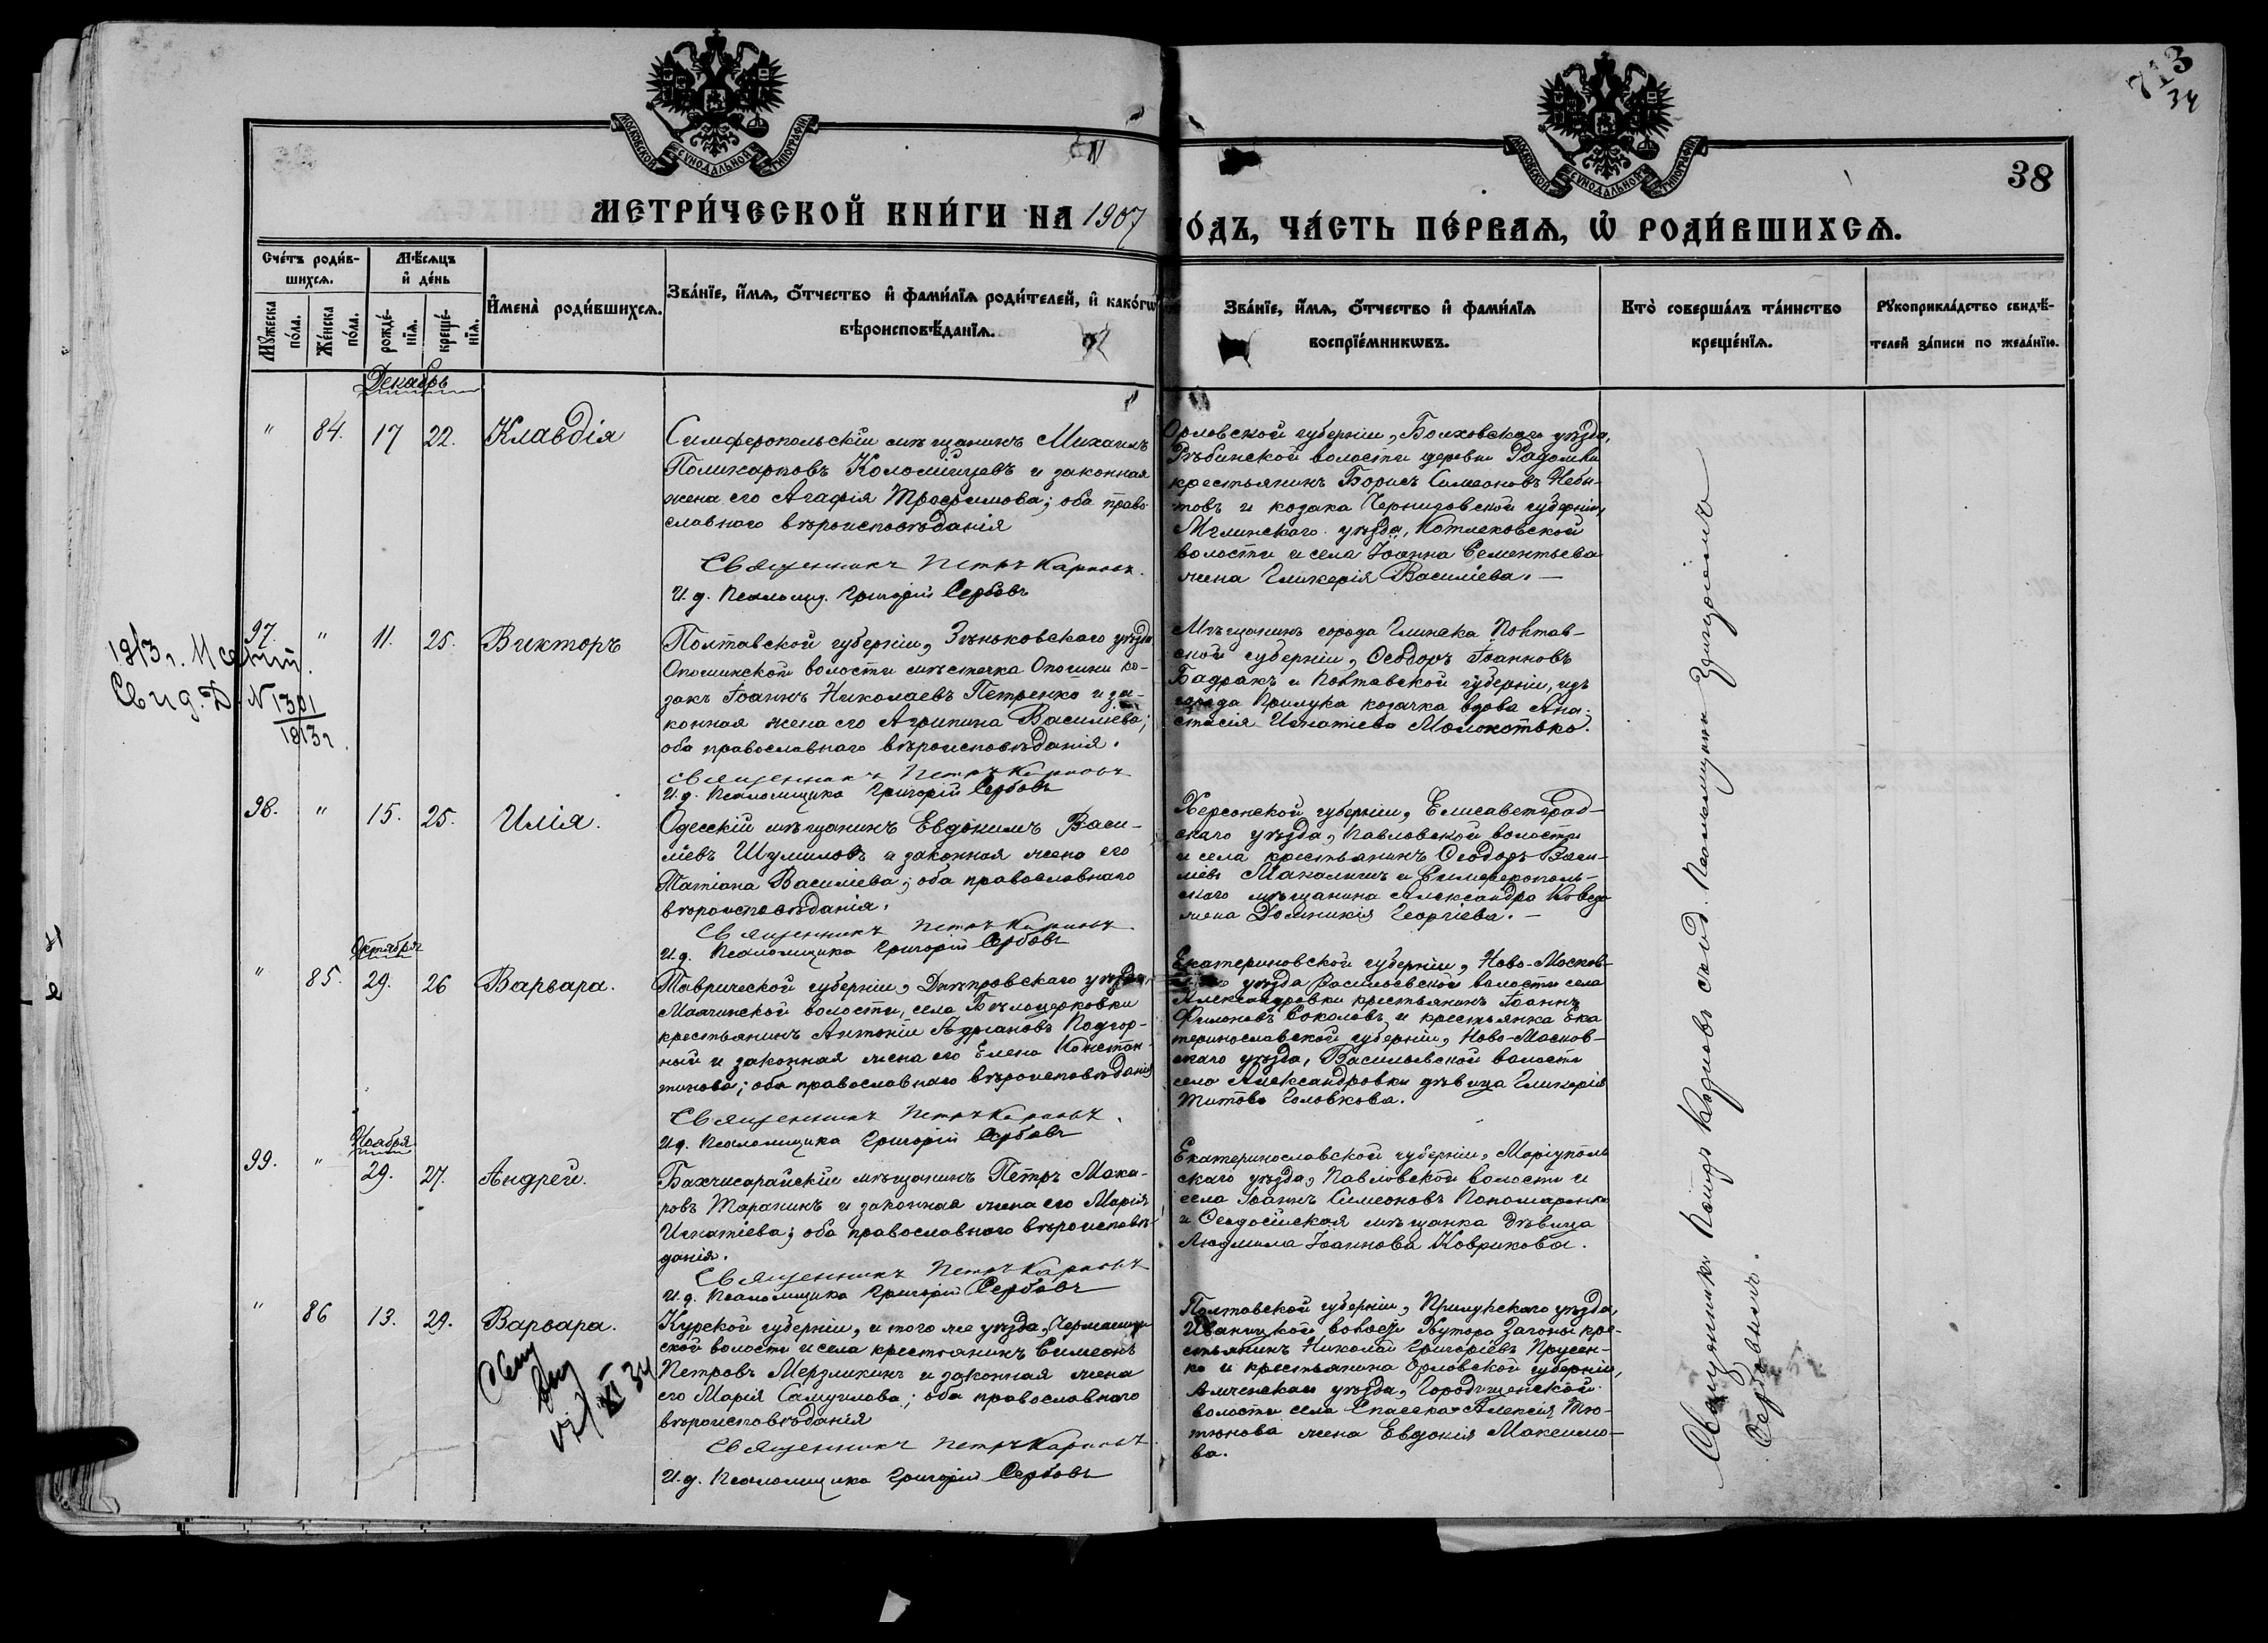 713
34
38
МОСКОВСКОЙ СѴНОДАЛЬНОЙ ТИПОГРАФІИ
МОСКОВСКОЙ СѴНОДАЛЬНОЙ ТИПОГРАФІИ
МЕТРИ́ЧЕСКОЙ КНИ́ГИ НА 1907
ГО́ДЪ, ЧА́СТЬ ПЕ́РВАѦ, Ѡ҆ РОДИ́ВШИХСѦ.
Сче́тъ роди́в-
шихсѧ.
Мꙋ́жеска по́ла.
Же́нска по́ла.
Мѣ́сѧцъ
и҆ де́нь
рожде́-
нїѧ.
креще́-
нїѧ.
И҆мена̀ роди́вшихсѧ.
Зва́нїе, и҆́мѧ, ѻ҆́тчество и҆ фами́лїѧ роди́телей, и҆ како́гѡ
вѣроисповѣ́данїѧ.
Зва́нїе, и҆́мѧ, ѻ҆́тчество и҆ фами́лїѧ
воспрїе́мникѡвъ.
Кто̀ соверша́лъ та́инство
креще́нїѧ.
Рꙋкоприкла́дство свидѣ́-
телей за́писи по жела́нїю.
Декабрь
" 84. 17 22. Клавдія
Симферопольскій мѣщанинъ Михаилъ
Поликарповъ Коломійцевъ и законная
жена его Агафія Трофимова; оба право
славнаго вѣроисповѣданія
Священникъ Петръ Карповъ.
И. д. Псаломщ. Григорій Сербовъ
Орловской губерніи, Болховскаго уѣзда,
волости деревни Радомки
крестьянинъ Борисъ Симеоновъ Небы-
товъ и козака Черниговской губерніи,
Мглинскаго уѣзда, Котляковской
волости и села Іоанна Сементьева
жена Гликерія Василіева. —
1913 г.
Свид. Д. N 1301
1913 г.
97. " 11. 25. Викторъ
Полтавской губерніи, Зѣньковскаго уѣзда
Опошнянской волости мѣстечка Опошни ко-
закъ Іоаннъ Николаевъ Петренко и за-
конная жена его Агрипина Василіева;
оба православнаго вѣроисповѣданія.
Священникъ Петръ Карповъ
И. д. Псаломщика Григорій Сербовъ
Мѣщанинъ города Глинска Полтав-
ской губерніи, Ѳеодоръ Іоанновъ
Бадракъ и Полтавской губерніи, изъ
города Прилука козачка вдова Ана-
стасія Игнатіева Молокотько.
98. " 15. 25. Илія.
Одесскій мѣщанинъ Евдокимъ Васи-
ліевъ Шумиловъ и законная жена его
Татіана Василіева; оба православнаго
вѣроисповѣданія.
Священникъ Петръ Карповъ
И. д. Псаломщика Григорій Сербовъ
Херсонской губерніи, Елисаветград-
скаго уѣзда, Павловской волости
и села крестьянинъ Ѳеодоръ Васи-
ліевъ и Симферополь-
скаго мѣщанина Александра
жена Домникія Георгіева. —
Октября
" 85. 29. 26 Варвара.
Таврической губерніи, Днѣпровскаго уѣзда
Маячинской волости, села Бѣлоцерковки
крестьянинъ Антоній Адріановъ Подгор-
ный и законная жена его Елена Констан-
тинова; оба православнаго вѣроисповѣданія
Священникъ Петръ Карповъ.
И. д. Псаломщика Григорій Сербовъ
губерніи, Ново-Москов-
уѣзда Васильевской волости села
Александровки крестьянинъ Іоаннъ
Филоновъ Соколовъ и крестьянка Ека
теринославской губерніи, Ново-Москов-
скаго уѣзда, Васильевской волости
села Александровки дѣвица Гликерія
Титова Головкова.
Ноября
99. " 29. 27. Андрей.
Бахчисарайскій мѣщанинъ Петръ Мака-
ровъ Таранинъ и законная жена его Марія
Игнатіева; оба православнаго вѣроисповѣ-
данія.
Священникъ Петръ Карповъ
И. д. Псаломщика Григорій Сербовъ
Екатеринославской губерніи, Маріуполь
скаго уѣзда, Павловской волости и
села Іоаннъ Симеоновъ Пономаренко
и Ѳеодосійская мѣщанка дѣвица
Людмила Іоаннова Коврикова.
" 86 13. 29. Варвара.
Курской губерніи, и того же уѣзда,
ской волости и села крестьянинъ Симеонъ
Петровъ Мерзликинъ и законная жена
его Марія Самуилова; оба православнаго
вѣроисповѣданія
Священникъ Петръ Карповъ.
И. д. Псаломщика Григорій Сербовъ
Полтавской губерніи, Прилукскаго уѣзда,
Иваницкой волости Хутора Загоны кре-
стьянинъ Николай Григоріевъ Прусен-
ко и крестьянина Орловской губерніи,
уѣзда, Городищенской
волости села Алексія Тю-
тюнова жена Евдокія Максимо-
ва.
XI 34
Священникъ Петръ Карповъ съ и. д. Псаломщика Григоріемъ
Сербовымъ.